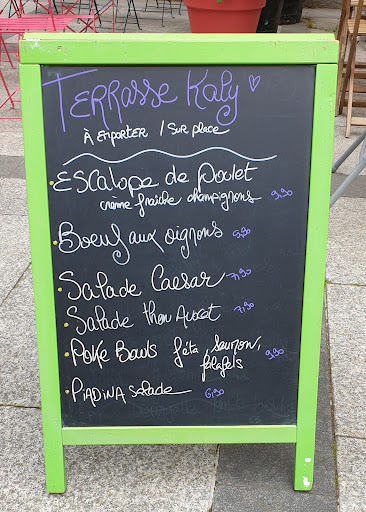 Terrasse Kaly
À Emporter / Sur place
Escalope de Poulet
creme fraîche champignons 9,90
Boeuf aux oignons 9,90
Salade Caesar 7,90
Salade thon Avocat 7,90
Poke Bowls féta, Saumon, 9,90
falafels
PiADiNA Salade 6,90